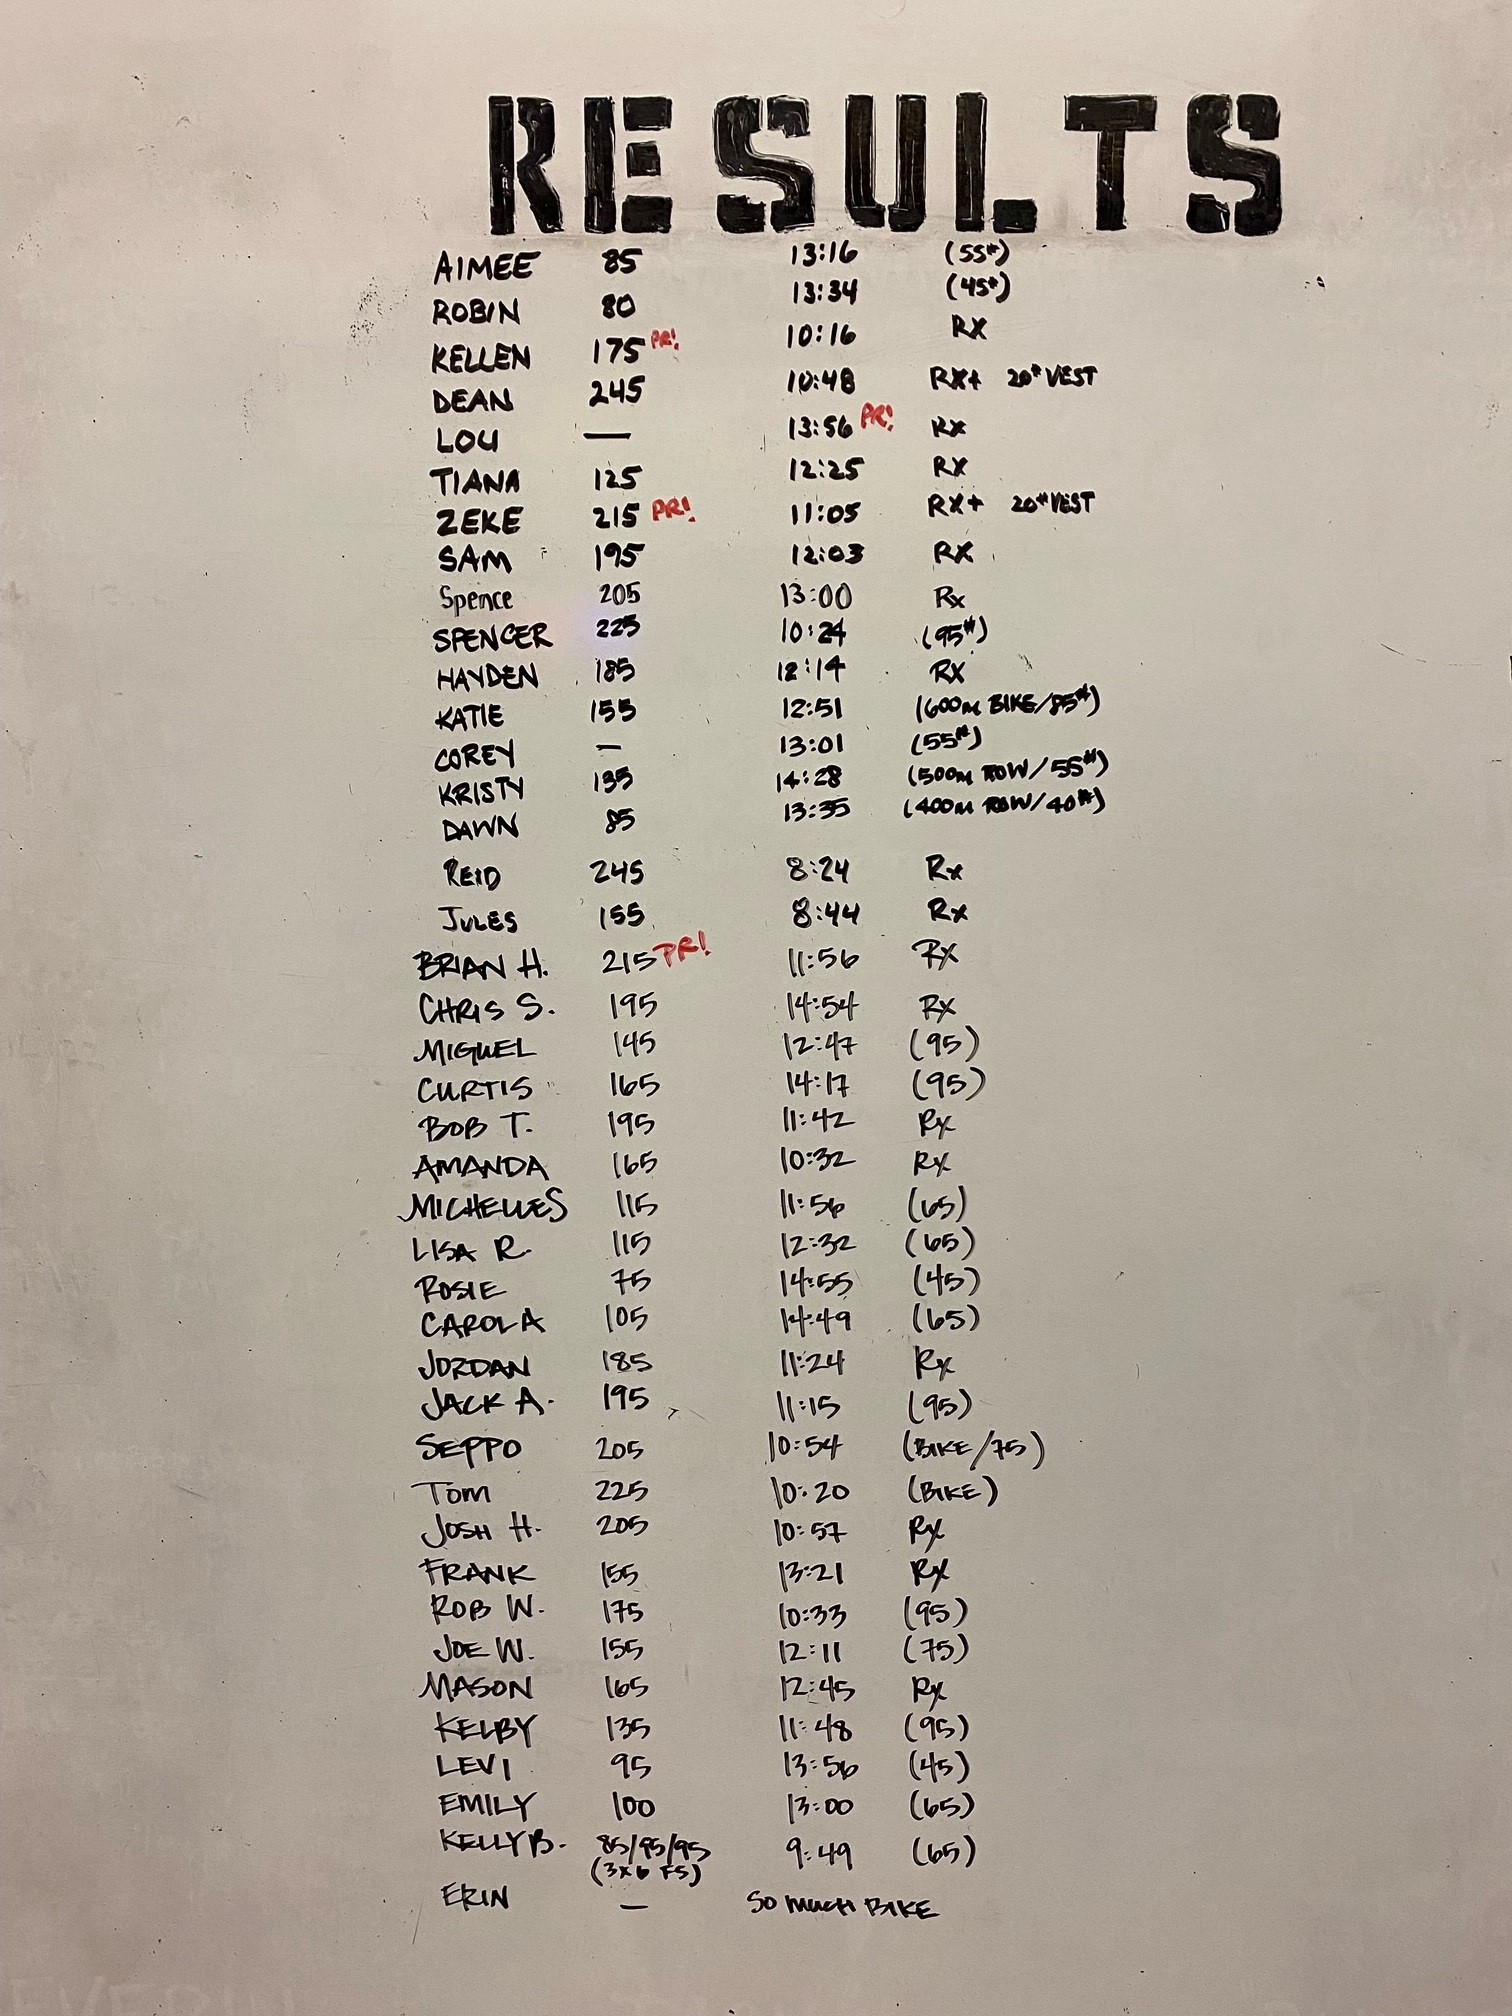 RESULTS
AIMEE 85 13:16 (55#)
ROBIN 80 13:34 (45#)
KELLEN 175 PR! 10:16 RX
DEAN 245 10:48 RX+ 20# VEST
LOU — 13:56 PR! RX
TIANA 125 12:25 RX
ZEKE 215 PR! 11:05 RX+ 20# VEST
SAM 195 12:03 RX
Spence 205 13:00 Rx
SPENCER 225 10:24 (95#)
HAYDEN 185 12:14 RX
KATIE 155 12:51 (600m BIKE/85#)
COREY — 13:01 (55#)
KRISTY 135 14:28 (500m ROW/55#)
DAWN 85 13:35 (400m ROW/40#)
REID 245 8:24 Rx
JULES 155 8:44 Rx
BRIAN H. 215 PR! 11:56 Rx
CHRIS S. 195 14:54 Rx
MIGUEL 145 12:47 (95)
CURTIS 165 14:17 (95)
BOB T. 195 11:42 Rx
AMANDA 165 10:32 Rx
MICHELLE S 115 11:56 (65)
LISA R. 115 12:32 (65)
ROSIE 75 14:55 (45)
CAROLA 105 14:49 (65)
JORDAN 185 11:24 Rx
JACK A. 195 11:15 (95)
SEPPO 205 10:54 (BIKE/75)
TOM 225 10:20 (BIKE)
JOSH H. 205 10:57 Rx
FRANK 155 13:21 Rx
ROB W. 175 10:33 (95)
JOE W. 155 12:11 (75)
MASON 165 12:45 Rx
KELBY 135 11:48 (95)
LEVI 95 13:56 (45)
EMILY 100 13:00 (65)
KELLY B. 85/95/95 9:49 (65)
(3x6 FS)
ERIN — SO MUCH BIKE